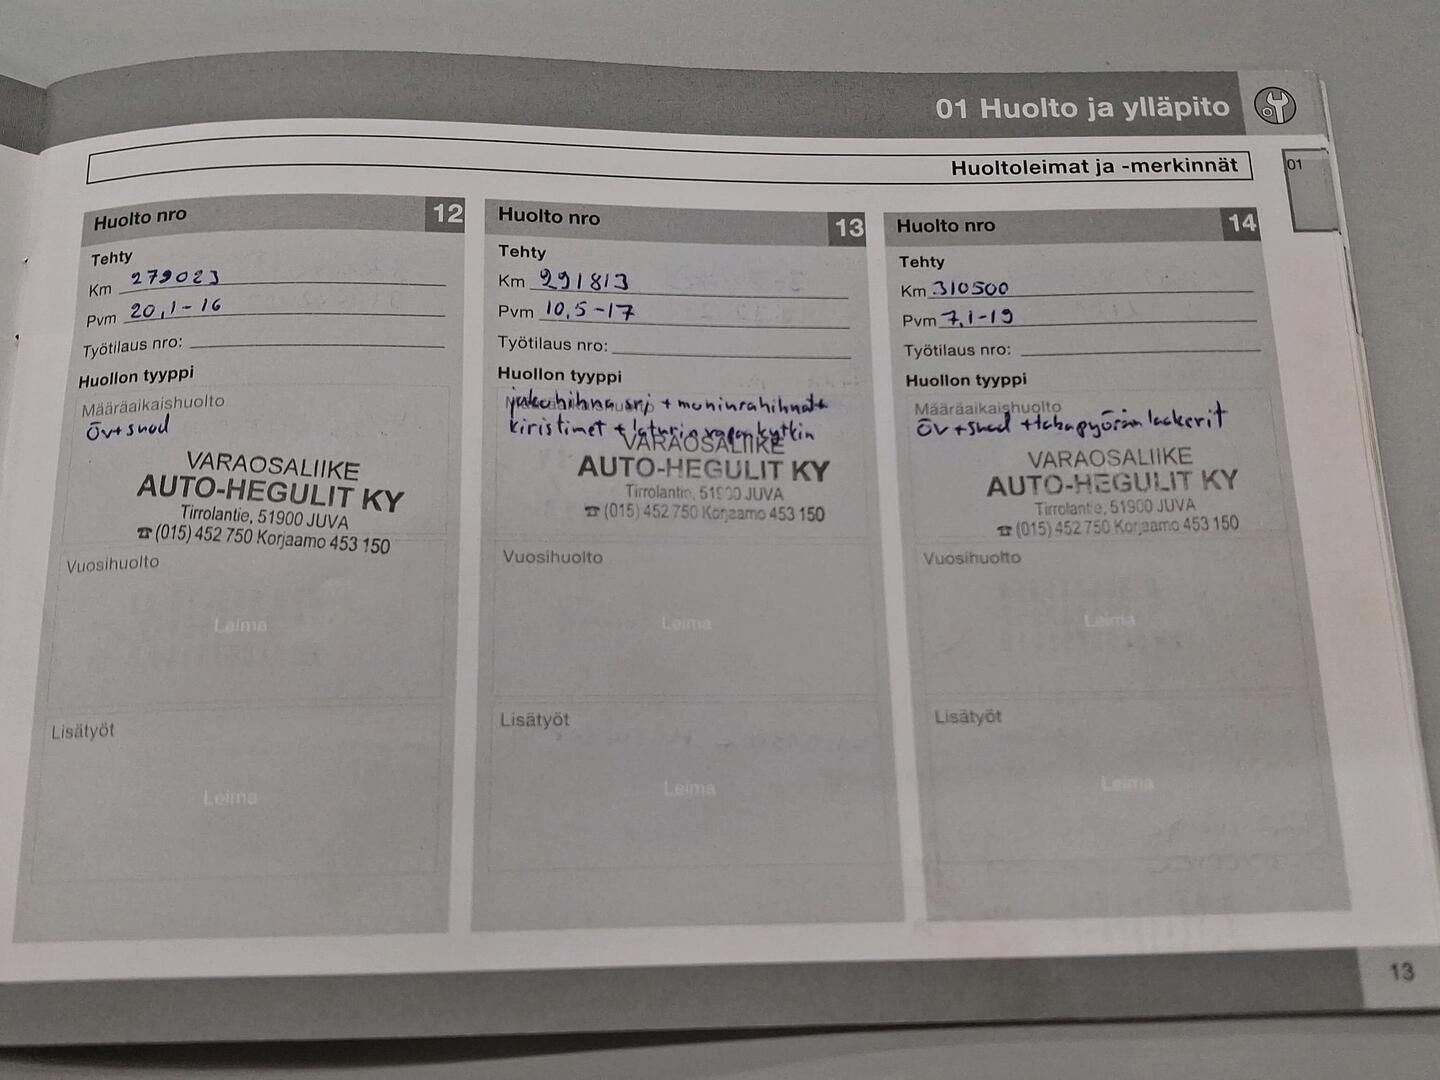 01 Huolto ja ylläpito
Huoltoleimat ja -merkinnät
01
Huolto nro 12
Tehty
Km 279023
Pvm 20,1-16
Työtilaus nro:
Huollon tyyppi
Määräaikaishuolto
öv+suod
VARAOSALIIKE
AUTO-HEGULIT KY
Tirrolantie, 51900 JUVA
☎ (015) 452 750 Korjaamo 453 150
Vuosihuolto
Leima
Lisätyöt
Leima
Huolto nro 13
Tehty
Km 291813
Pvm 10,5-17
Työtilaus nro:
Huollon tyyppi
Määräaikaishuolto
jakohihna srj + moniurahihnat+
kiristimet + laturin vapaakytkin
VARAOSALIIKE
AUTO-HEGULIT KY
Tirrolantie, 51900 JUVA
☎ (015) 452 750 Korjaamo 453 150
Vuosihuolto
Leima
Lisätyöt
Leima
Huolto nro 14
Tehty
Km 310500
Pvm 7,1-19
Työtilaus nro:
Huollon tyyppi
Määräaikaishuolto
öv+suod +takapyörän laakerit
VARAOSALIIKE
AUTO-HEGULIT KY
Tirrolantie, 51900 JUVA
☎ (015) 452 750 Korjaamo 453 150
Vuosihuolto
Leima
Lisätyöt
Leima
13